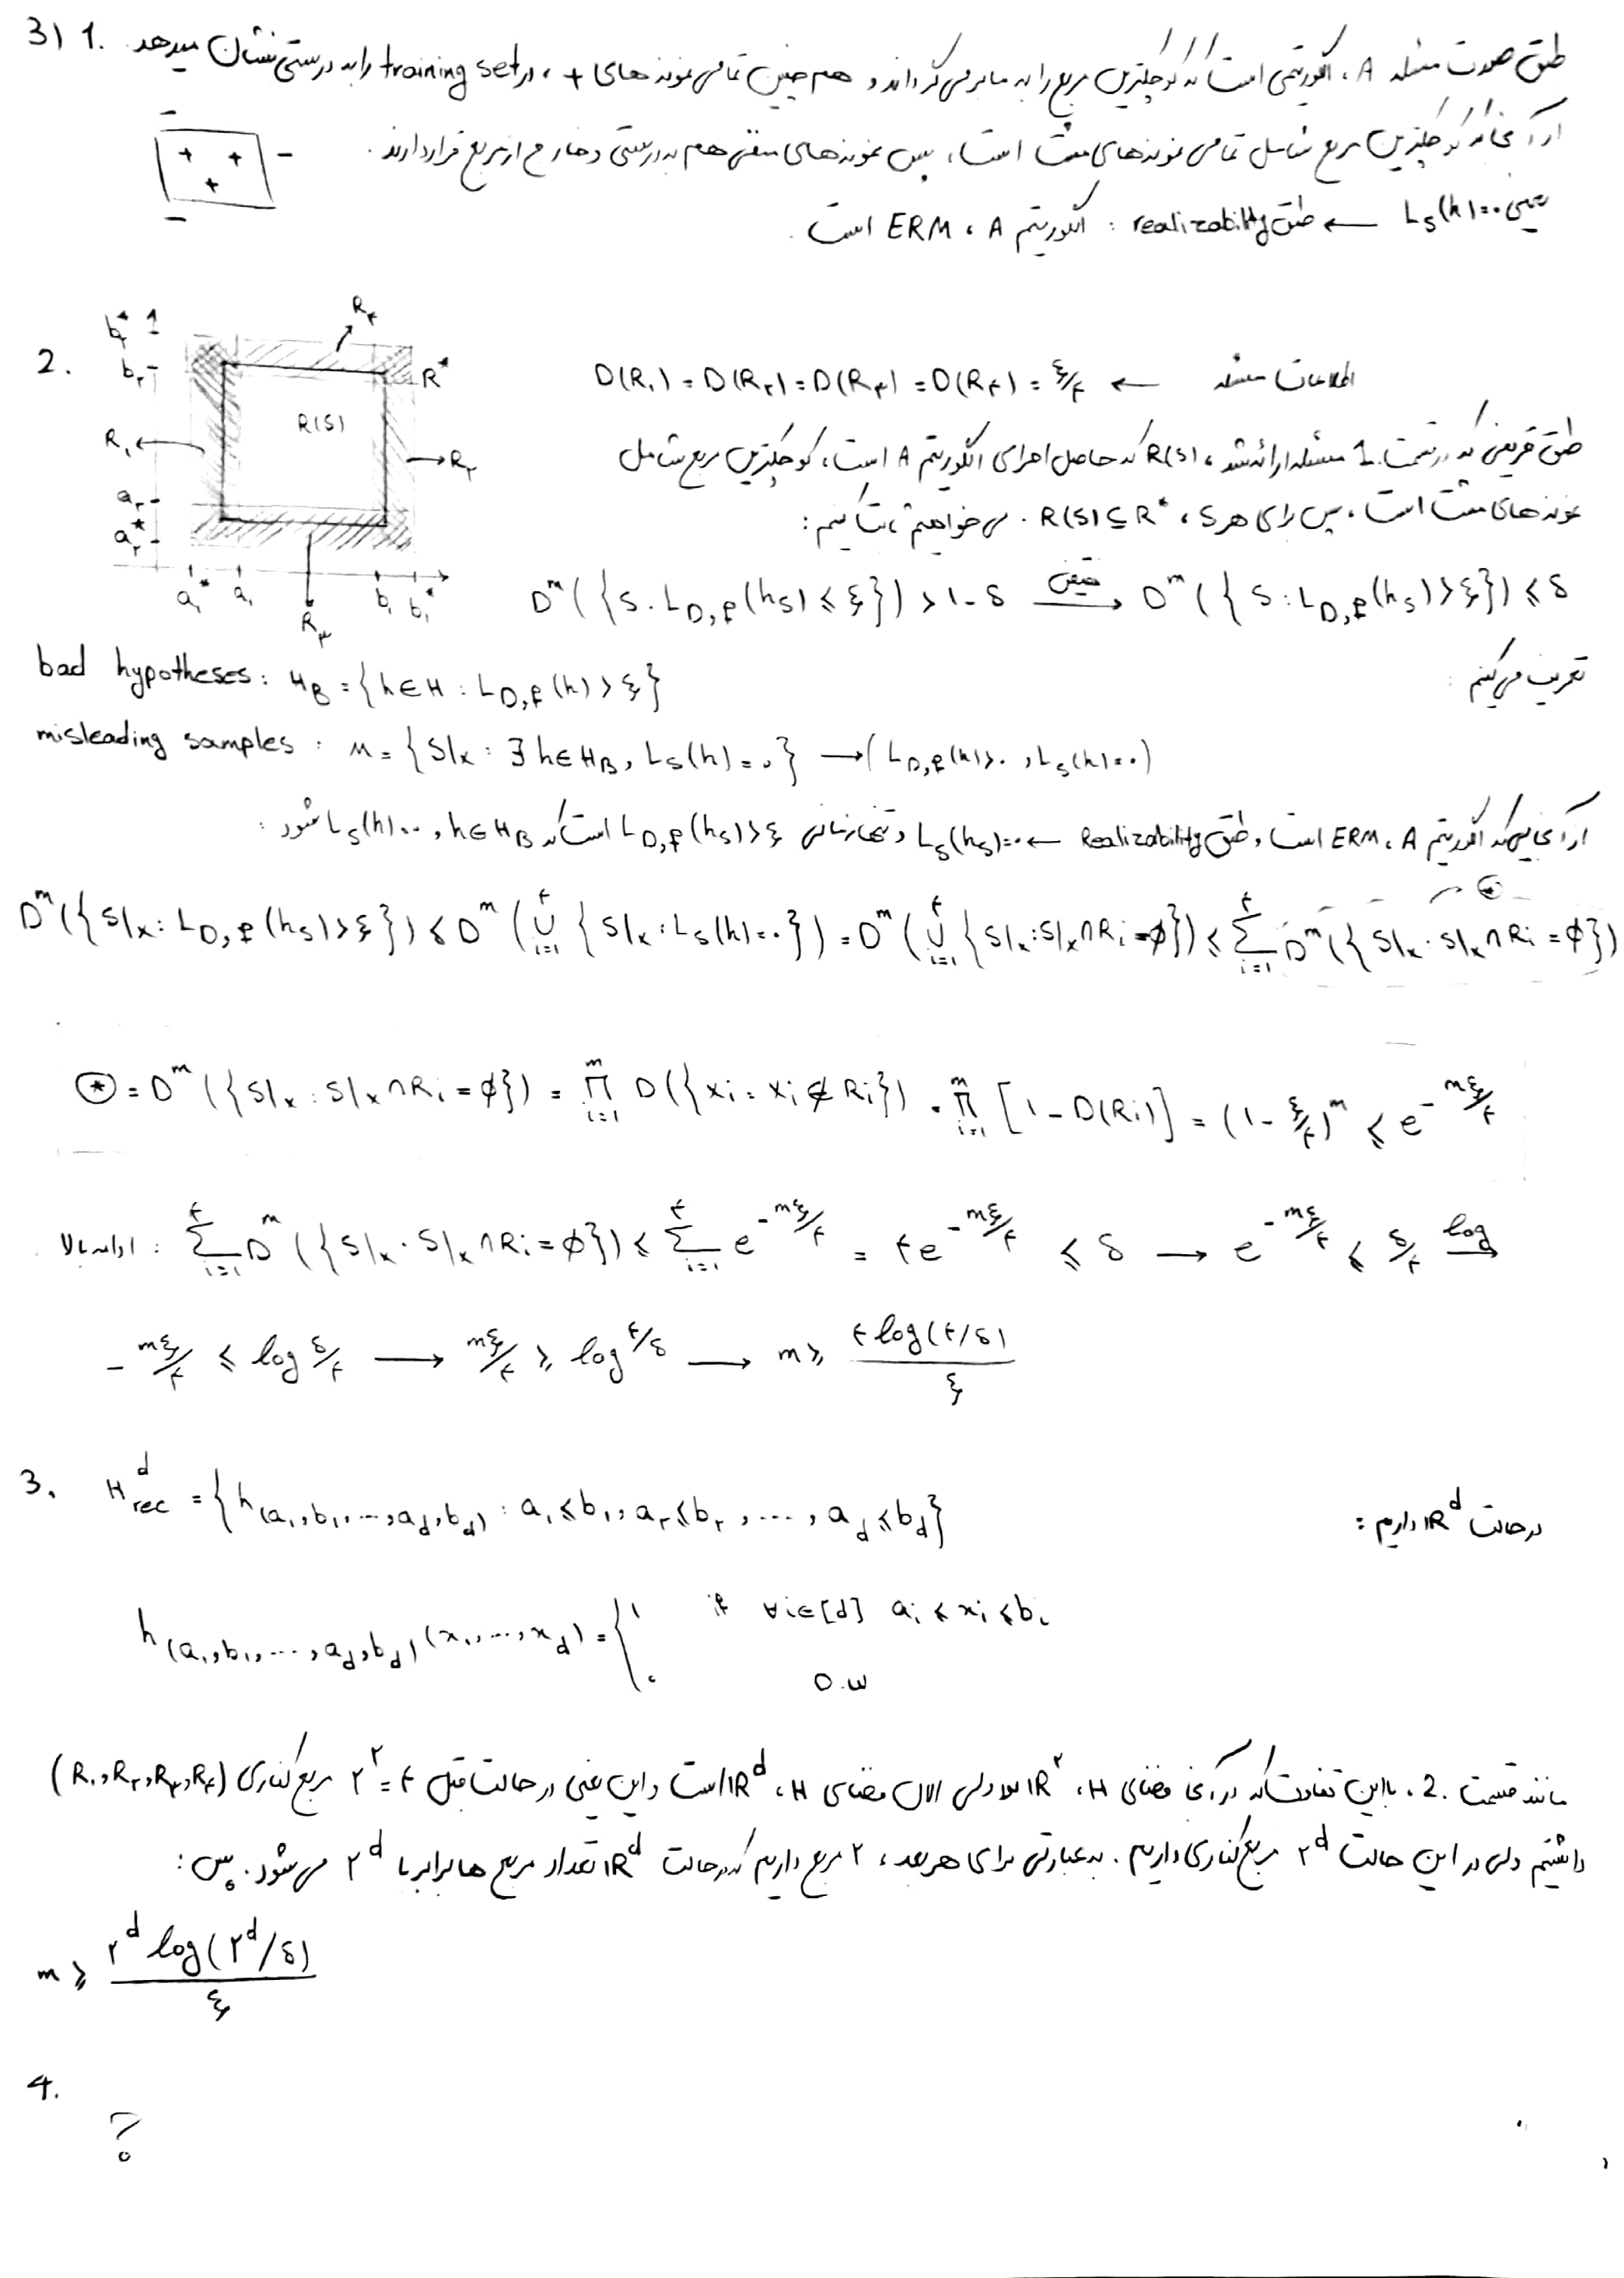 3) 1. طبق صورت مسئله A، الگوریتمی است که کوچکترین مربع را به ما برمی‌گرداند و همچنین تمامی نمونه‌های +، در training set را به درستی نشان میدهد.
از آنجا که کوچکترین مربع شامل تمامی نمونه‌های مثبت است، پس نمونه‌های منفی هم به درستی و خارج از مربع قرار دارند.
یعنی L_S(h)=۰ ← طبق realizability : الگوریتم A، ERM است.
− + + − + −
2. b₂* b₂ a₂ a₂* a₁* a₁ b₁ b₁* R₁ R₂ R₃ R₄ R* R(S)
اطلاعات مسئله ← D(R₁) = D(R₂) = D(R₳) = D(R₄) = ε/۴
طبق تعریفی که در قسمت 1. مسئله ارائه شد، R(S) که حاصل اجرای الگوریتم A است، کوچکترین مربع شامل
نمونه‌های مثبت است، پس برای هر S، R(S) ⊆ R*. می‌خواهیم ثابت کنیم:
D^m({S : L_{D,f}(h_S) ≤ ε}) ≥ ۱-δ → D^m({S : L_{D,f}(h_S) > ε}) ≤ δ
تعریف می‌کنیم:
bad hypotheses: H_B = {h∈H : L_{D,f}(h) > ε}
misleading samples: M = {S|x : ∃ h∈H_B, L_S(h)=۰} → (L_{D,f}(h)>۰, L_S(h)=۰)
از آنجایی که الگوریتم A، ERM است و طبق Realizability ← L_S(h_S)=۰ و تنها زمانی L_{D,f}(h_S)>ε است که h∈H_B و L_S(h)=۰ شود:
D^m({S|x : L_{D,f}(h_S)>ε}) ≤ D^m(⋃_{i=۱}^{۴} {S|x : L_S(h)=۰}) = D^m(⋃_{i=۱}^{۴} {S|x : S|x∩R_i=∅}) ≤ Σ_{i=۱}^{۴} D^m({S|x : S|x∩R_i=∅}) ⊛
⊛ = D^m({S|x : S|x∩R_i=∅}) = ∏_{i=۱}^{m} D({x_i : x_i∉R_i}) = ∏_{i=۱}^{m} [۱-D(R_i)] = (۱-ε/۴)^m ≤ e^{-mε/۴}
ادامه بالا: Σ_{i=۱}^{۴} D^m({S|x : S|x∩R_i=∅}) ≤ Σ_{i=۱}^{۴} e^{-mε/۴} = ۴e^{-mε/۴} ≤ δ → e^{-mε/۴} ≤ δ/۴ log→
-mε/۴ ≤ log δ/۴ → mε/۴ ≥ log ۴/δ → m ≥ ۴log(۴/δ)/ε
3. H_rec^d = {h_(a₁,b₁,…,a_d,b_d) : a₁≤b₁, a₂≤b₂, …, a_d≤b_d} در حالت IR^d داریم:
h_(a₁,b₁,…,a_d,b_d)(x₁,…,x_d) = { ۱ if ∀i∈[d] a_i≤x_i≤b_i
۰ O.W
مانند قسمت 2.، با این تفاوت که در آنجا فضای H، IR^۲ بود ولی الان فضای H، IR^d است و این یعنی در حالت قبل ۴ = ۲^۲ مربع کناری (R₁,R₂,R₃,R₄)
داشتیم ولی در این حالت ۲^d مربع کناری داریم. به عبارتی برای هر بعد، ۲ مربع داریم که در حالت IR^d تعداد مربع‌ها برابر با ۲^d می‌شود. پس:
m ≥ ۲^d log(۲^d/δ)/ε
4.
?